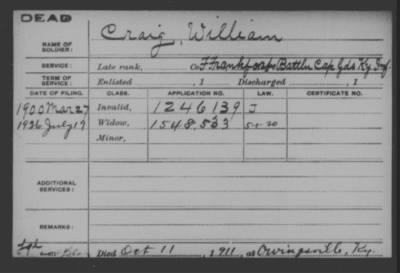 DEAD
NAME OF SOLDIER: Craig, William
SERVICE: Late rank, Co F Frankfort Battln Cap Gds Ky Inf.
TERM OF SERVICE: Enlisted , 1 Discharged , 1
DATE OF FILING. CLASS. APPLICATION NO. LAW. CERTIFICATE NO.
1900 Mar 27 Invalid, 1246139 J
1926 July 19 Widow, 1548,533 5-1-20
Minor,
ADDITIONAL SERVICES:
REMARKS:
Died Oct 11, 1911, at Owingsville, Ky.